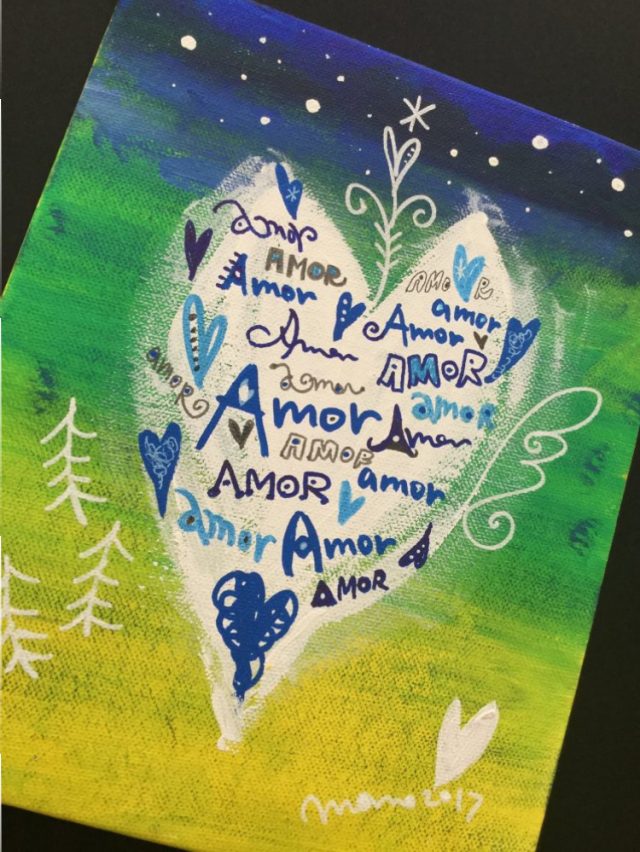 amor
AMOR
Amor
AMOR
amor
Amor
Amor
AMOR
amor
AMOR
amor
Amor
Amor
AMOR
AMOR
amor
amor
Amor
AMOR
momo 2017